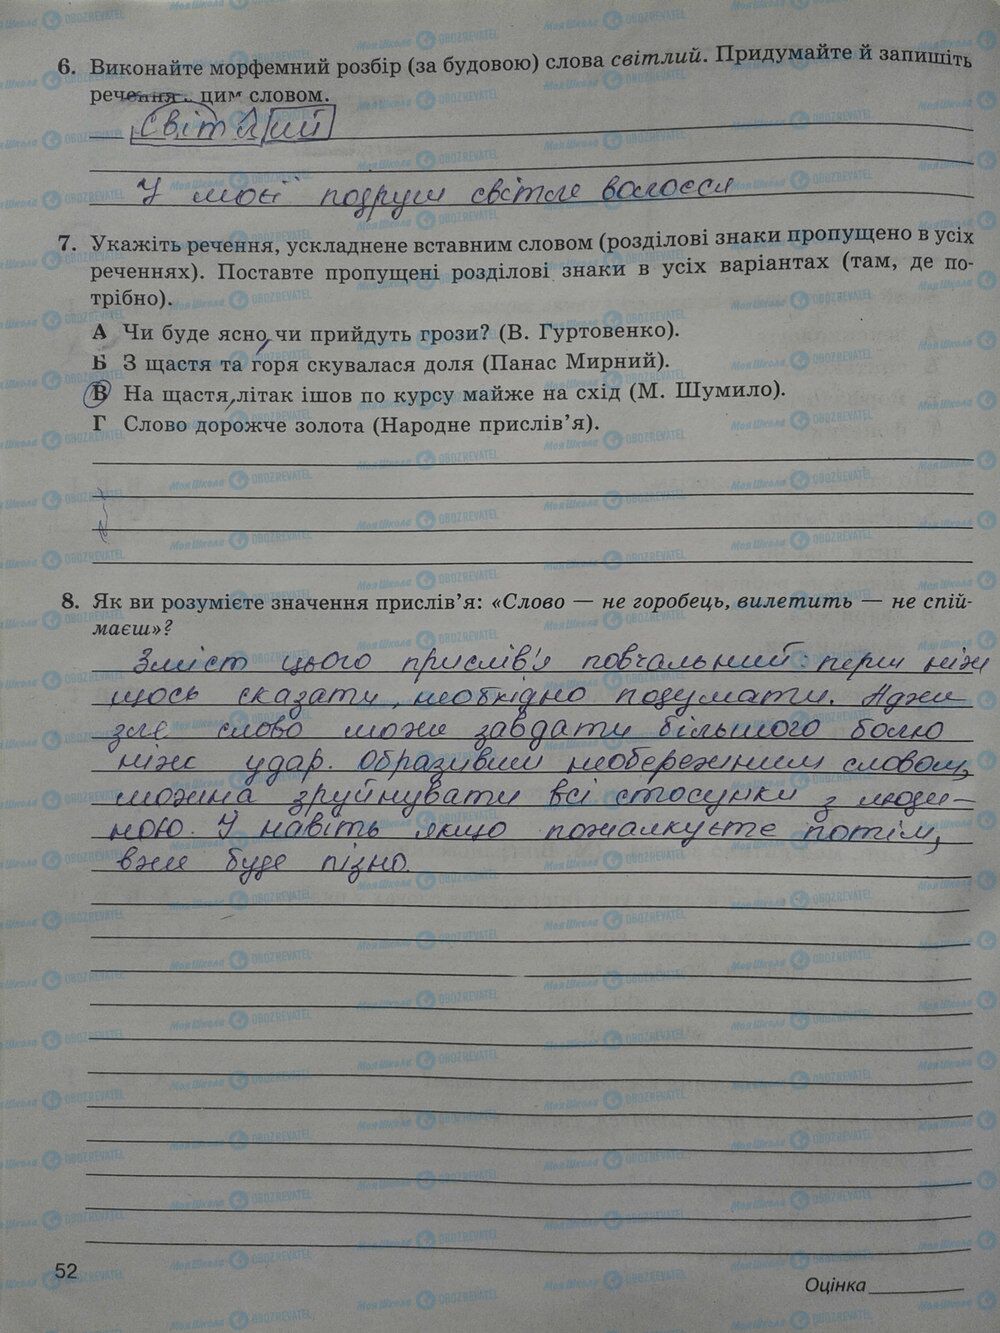 6. Виконайте морфемний розбір (за будовою) слова світлий. Придумайте й запишіть
речення з цим словом.
світлий
У моєї подруги світле волосся
7. Укажіть речення, ускладнене вставним словом (розділові знаки пропущено в усіх
реченнях). Поставте пропущені розділові знаки в усіх варіантах (там, де по-
трібно).
А Чи буде ясно, чи прийдуть грози? (В. Гуртовенко).
Б З щастя та горя скувалася доля (Панас Мирний).
В На щастя, літак ішов по курсу майже на схід (М. Шумило).
Г Слово дорожче золота (Народне прислів’я).
8. Як ви розумієте значення прислів’я: «Слово — не горобець, вилетить — не спій-
маєш»?
Зміст цього прислів'я повчальний: перш ніж
щось сказати, необхідно подумати. Адже
зле слово може завдати більшого болю
ніж удар. Образивши необережним словом,
можна зруйнувати всі стосунки з люди-
ною. І навіть якщо пожалкуєте потім,
вже буде пізно.
52
Оцінка